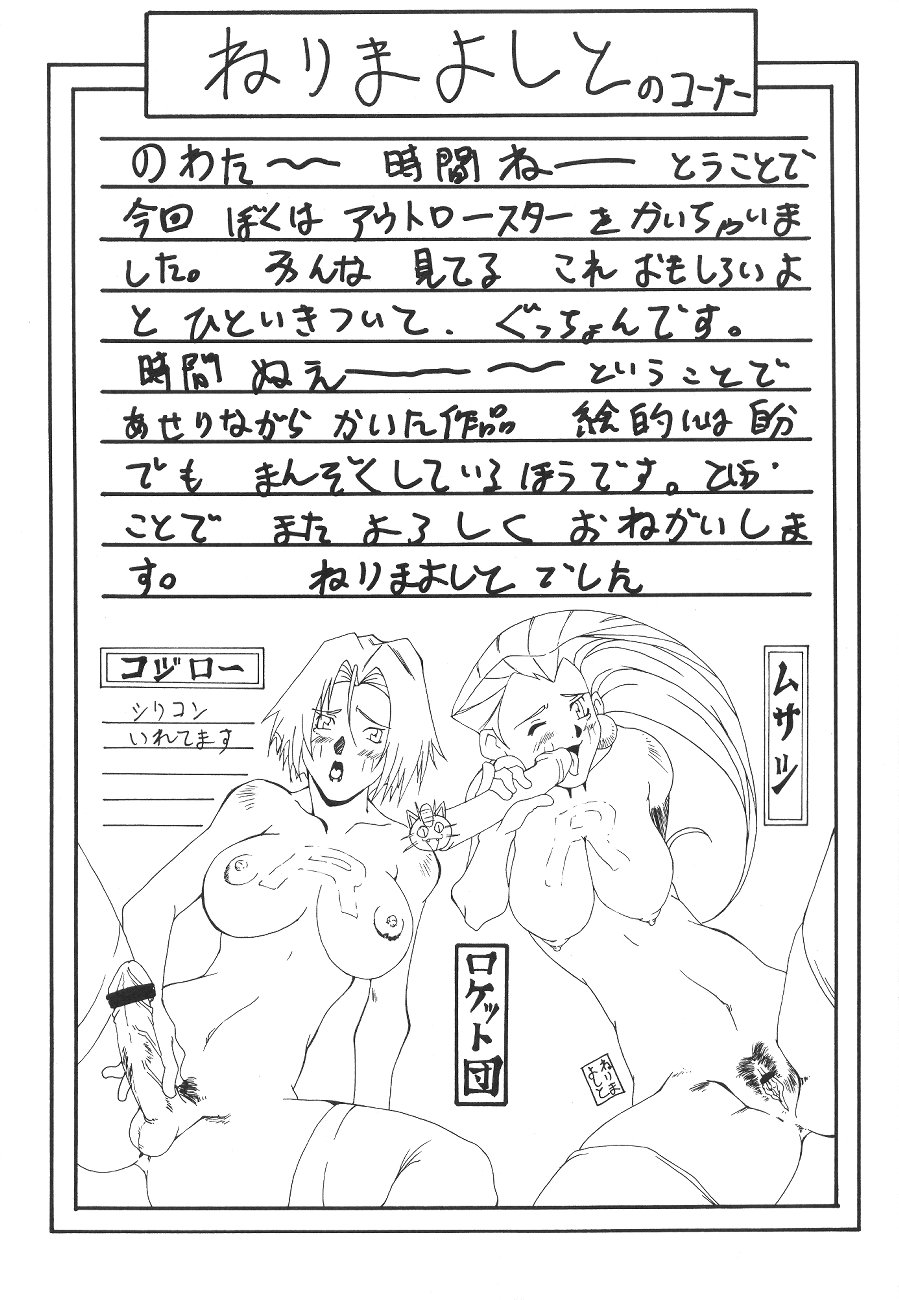 ねりまよしと のコーナー
のわた〜〜 時間ね―― とうことで
今回 ぼくは アウトロースターを かいちゃいま
した。 みんな 見てる これ おもしろいよ
と ひといきついて、 ぐっちょんです。
時間 ぬぇ――― 〜〜 ということで
あせりながら かいた作品 絵的には 自分
でも まんぞくしているほうです。
ことで またよろしく おねがいしま
す。 ねりまよしと でした
コジロー
シリコン
いれてます
ムサシ
ロケット団
ねりま
よしと